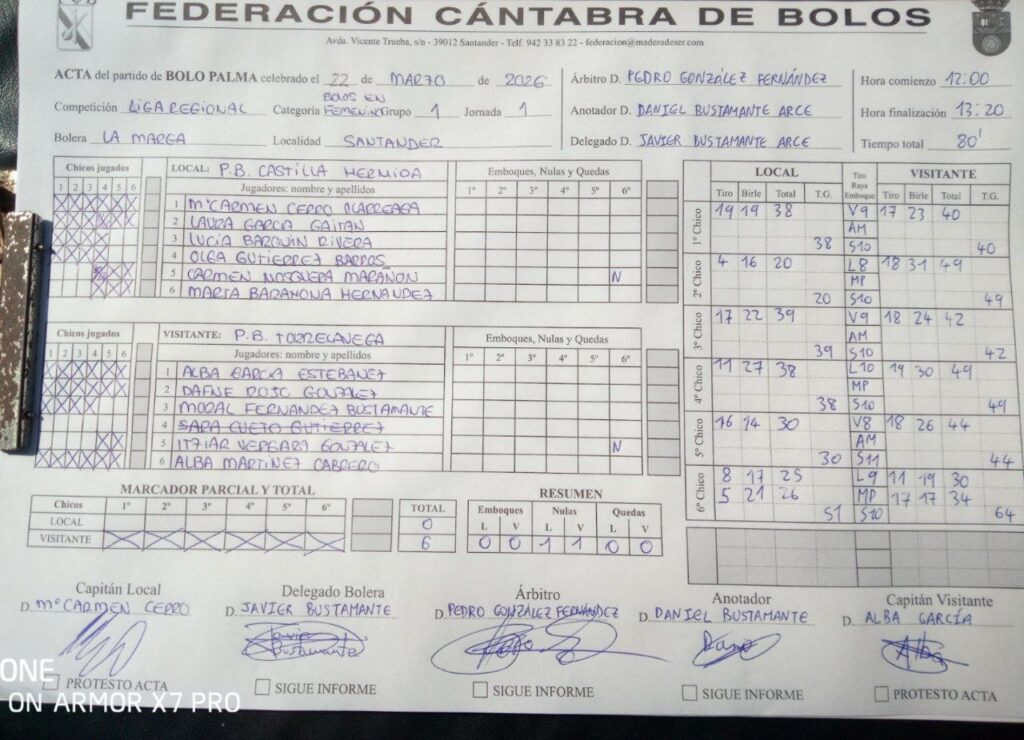 FEDERACIÓN CÁNTABRA DE BOLOS
Avda. Vicente Trueba, s/n - 39012 Santander - Telf. 942 33 83 22 - federacion@maderadeser.com
ACTA del partido de BOLO PALMA celebrado el 22 de MARZO de 2026
Árbitro D. PEDRO GONZÁLEZ FERNÁNDEZ
Hora comienzo 12:00
Competición LIGA REGIONAL Categoría BOLOS EN FEMENINO Grupo 1 Jornada 1
Anotador D. DANIEL BUSTAMANTE ARCE
Hora finalización 13:20
Bolera LA MARGA Localidad SANTANDER
Delegado D. JAVIER BUSTAMANTE ARCE
Tiempo total 80'
Chicos jugados
1 2 3 4 5 6
LOCAL: P.B. CASTILLA HERMIDA
Emboques, Nulas y Quedas
Jugadores: nombre y apellidos
1º 2º 3º 4º 5º 6º
1 Mº CARMEN CERRO OLARREAGA
2 LAURA GARCIA GAITAN
3 LUCÍA BARQUIN RIVERA
4 OLGA GUTIERREZ BARROS
5 CARMEN NOSQUERA MARAÑON N
6 MARTA BARAHONA HERNANDEZ
Chicos jugados
1 2 3 4 5 6
VISITANTE: P.B. TORRELAVEGA
Emboques, Nulas y Quedas
Jugadores: nombre y apellidos
1º 2º 3º 4º 5º 6º
1 ALBA GARCÍA ESTEBANEZ
2 DAFNE ROJO GONZALEZ
3 MORAL FERNANDEZ BUSTAMANTE
4 SARA CUETO GUTIERREZ
5 ITZIAR VERGARA GONZALEZ N
6 ALBA MARTINEZ CABRERO
LOCAL
Tiro Raya Emboque
VISITANTE
Tiro Birle Total T.G.
Tiro Birle Total T.G.
1º Chico
19 19 38 V9 17 23 40
AM
38 S10 40
2º Chico
4 16 20 L8 18 31 49
MP
20 S10 49
3º Chico
17 22 39 V9 18 24 42
AM
39 S10 42
4º Chico
11 27 38 L10 19 30 49
MP
38 S10 49
5º Chico
16 14 30 V8 18 26 44
AM
30 S11 44
6º Chico
8 17 25 L9 11 19 30
5 21 26 MP 17 17 34
51 S10 64
MARCADOR PARCIAL Y TOTAL
Chicos 1º 2º 3º 4º 5º 6º TOTAL
LOCAL 0
VISITANTE 6
RESUMEN
Emboques Nulas Quedas
L V L V L V
0 0 1 1 0 0
Capitán Local
D. Mº CARMEN CERRO
Delegado Bolera
D. JAVIER BUSTAMANTE
Javier Bustamante
Árbitro
D. PEDRO GONZÁLEZ FERNÁNDEZ
Anotador
D. DANIEL BUSTAMANTE
Capitán Visitante
D. ALBA GARCÍA
Alba
PROTESTO ACTA
SIGUE INFORME
SIGUE INFORME
SIGUE INFORME
PROTESTO ACTA
ONE
ON ARMOR X7 PRO